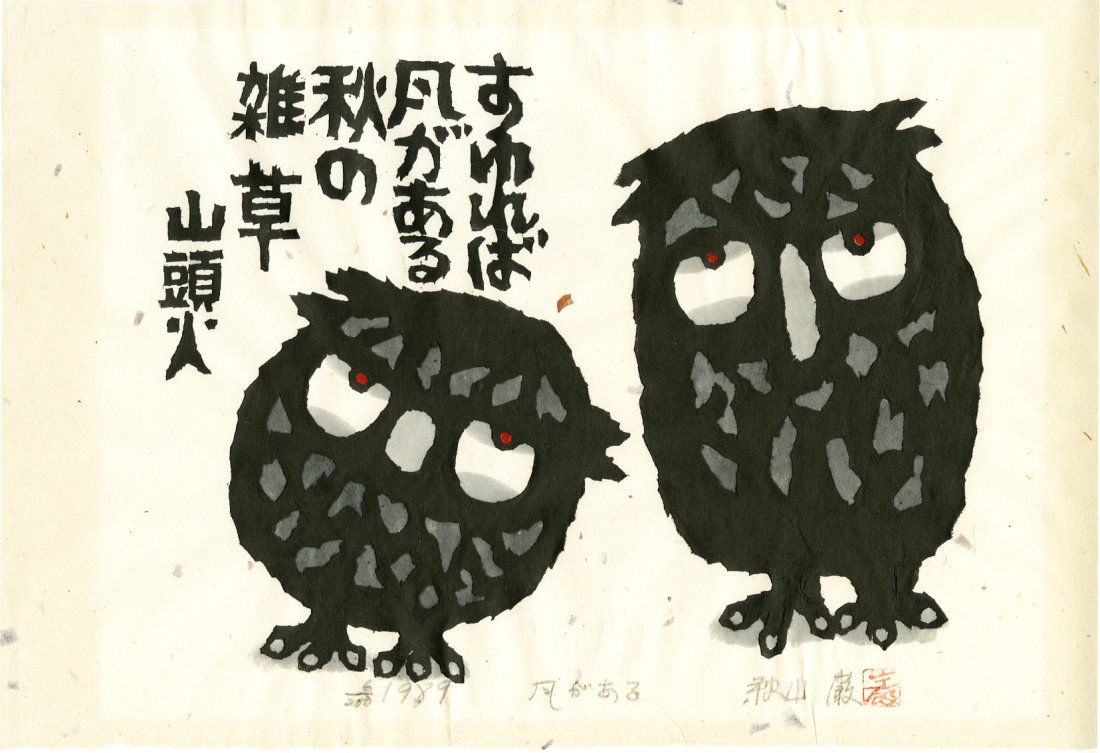 すわれば
風がある
秋の
雑草
山頭火
1989
風がある
秋山 巌